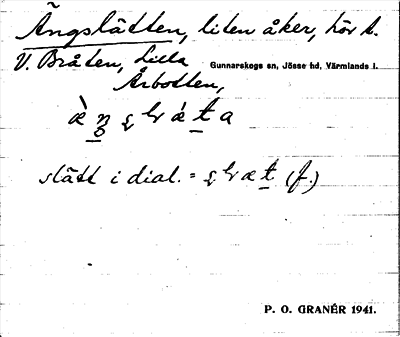 Ängslätten, liten åker, hör t.
V. Bråten, Lilla
Gunnarskogs sn, Jösse hd, Värmlands l.
Årbotten,
slätt i dial. = (f.)
P. O. GRANÉR 1941.